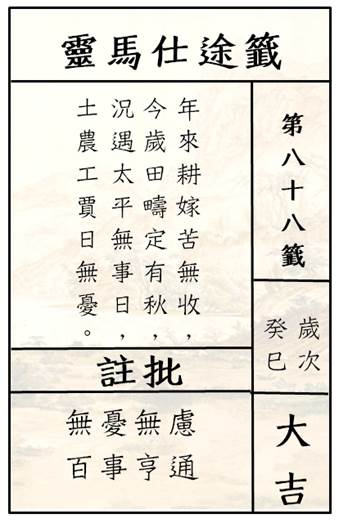 靈馬仕途籤
第八十八籤
歲次
癸巳
大吉
年來耕嫁苦無收，
今歲田疇定有秋，
況遇太平無事日，
土農工賈日無憂。
註批
無憂無慮
百事亨通